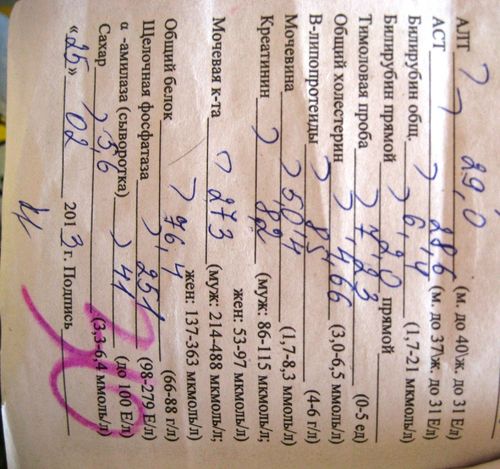 АЛТ 29,0 (м. до 40\ж, до 31 Е/л)
АСТ 28,6 (м. до 37\ж, до 31 Е/л)
Билирубин общ. 6,4 (1,7-21 мкмоль/л)
Билирубин прямой 2,0 прямой
Тимоловая проба (0-5 ед)
Общий холестерин 4,66 (3,0-6,5 ммоль/л)
В-липопротеиды 85 (4-6 г/л)
Мочевина (1,7-8,3 ммоль/л)
Креатинин 82 (муж: 86-115 мкмоль/л;
жен: 53-97 мкмоль/л)
Мочевая к-та 273 (муж: 214-488 мкмоль/л;
жен: 137-363 мкмоль/л)
Общий белок 76,4 (66-88 г/л)
Щелочная фосфатаза 251 (98-279 Е/л)
α -амилаза (сыворотка) 41 (до 100 Е/л)
Сахар 5,6 (3,3-6,4 ммоль/л)
«25» 02 2013 г. Подпись